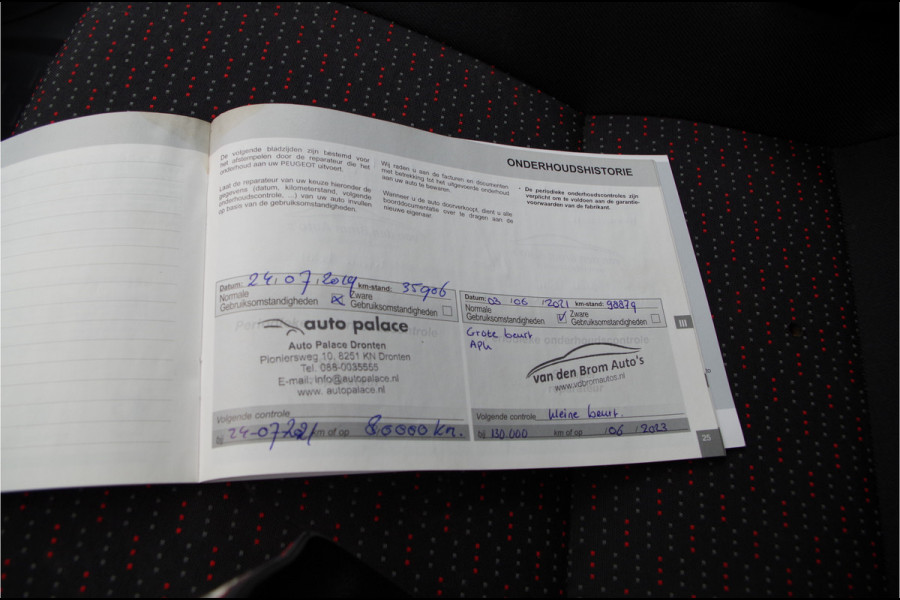 ONDERHOUDSHISTORIE
De volgende bladzijden zijn bestemd voor
het afstempelen door de reparateur die het
onderhoud aan uw PEUGEOT uitvoert.
Laat de reparateur van uw keuze hieronder de
gegevens (datum, kilometerstand, volgende
onderhoudscontrole, ...) van uw auto invullen
op basis van de gebruiksomstandigheden.
Wij raden u aan de facturen en documenten
met betrekking tot het uitgevoerde onderhoud
aan uw auto te bewaren.
Wanneer u de auto doorverkoopt, dient u alle
boorddocumentatie over te dragen aan de
nieuwe eigenaar.
De periodieke onderhoudscontroles zijn
verplicht om te voldoen aan de garantie-
voorwaarden van de fabrikant.
Datum: 24.07.2019 km-stand: 35906
Normale
Gebruiksomstandigheden
Zware
Gebruiksomstandigheden
auto palace
Auto Palace Dronten
Pioniersweg 10, 8251 KN Dronten
Tel. 088-0035555
E-mail: info@autopalace.nl
www. autopalace.nl
Volgende controle
bij 24-07-2021 km of op 80000 km.
Datum: 03 06 2021 km-stand: 98879
Normale
Gebruiksomstandigheden
Zware
Gebruiksomstandigheden
Grote beurt
APK
van den Brom Auto's
www.vdbromautos.nl
Volgende controle kleine beurt.
bij 130.000 km of op 06 2023
III
25